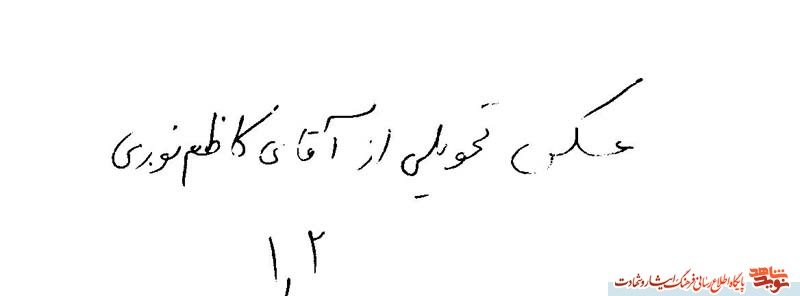 عکس تحویلی از آقای کاظم نوری
۱,۲
نوید شاهد
پایگاه اطلاع رسانی فرهنگ ایثار و شهادت